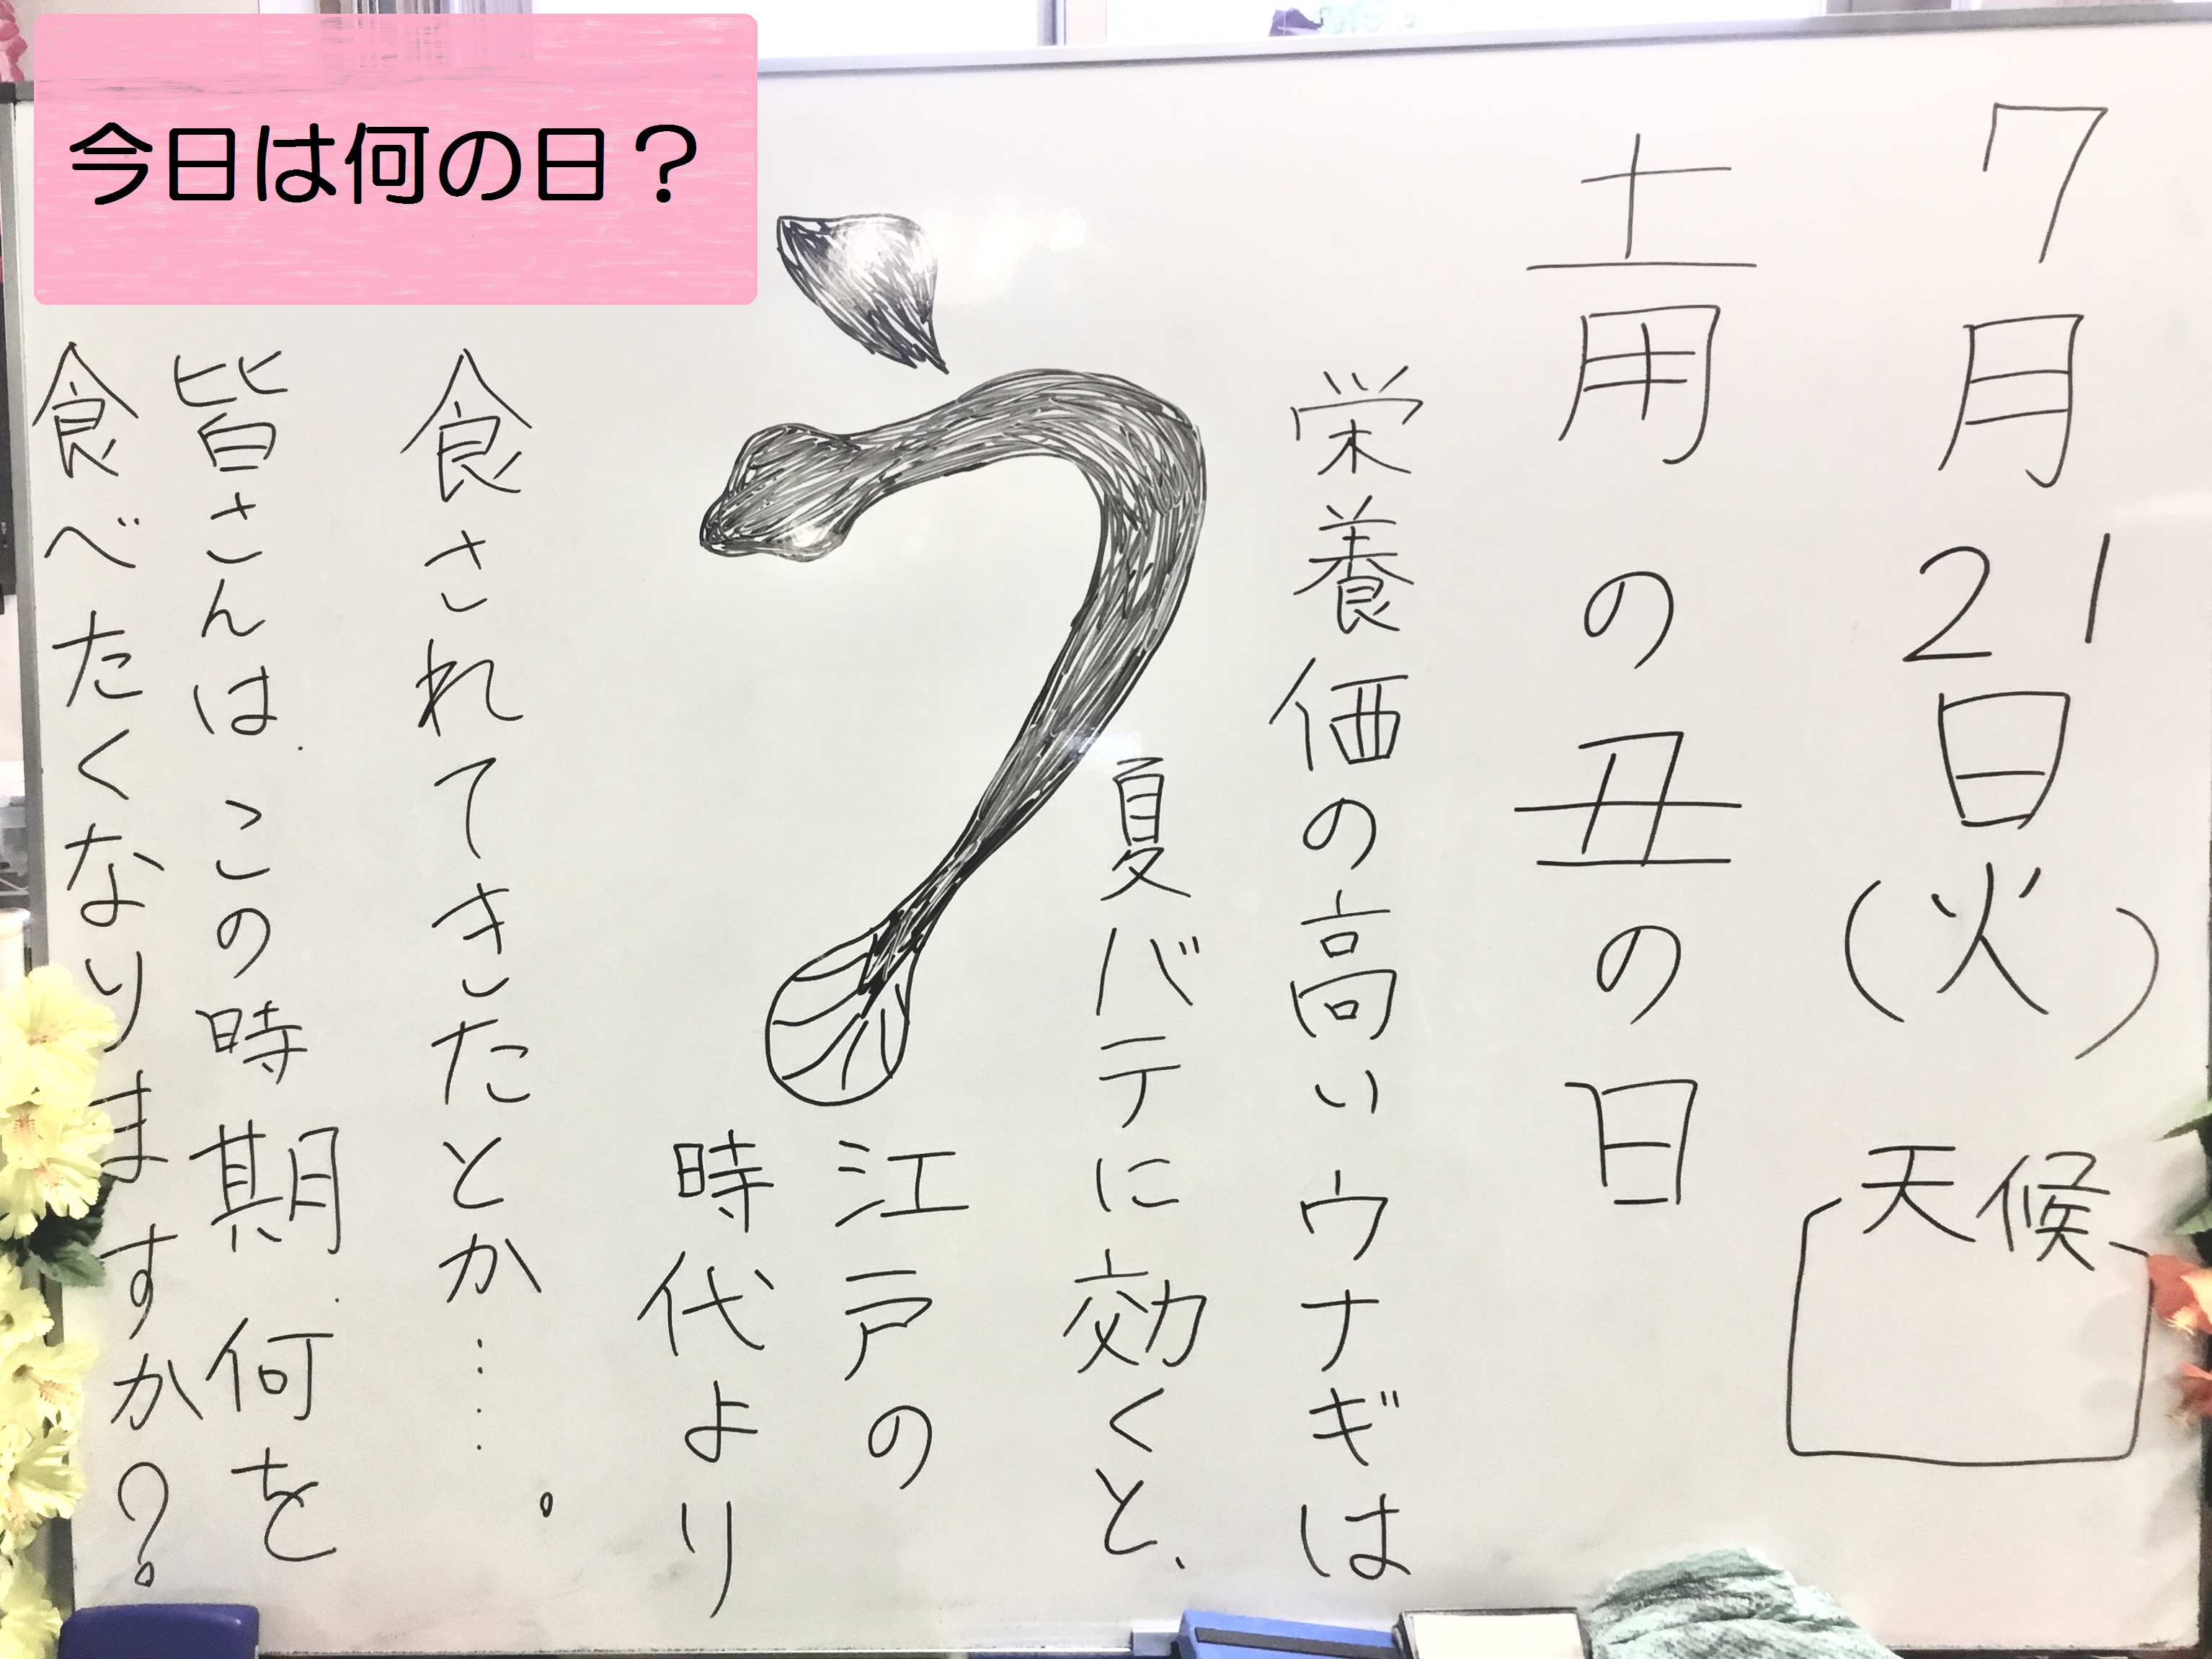 今日は何の日？
7月21日(火)
天候
土用の丑の日
栄養価の高いウナギは
夏バテに効くと、
江戸の
時代より
食されてきたとか……。
皆さんはこの時期何を
食べたくなりますか？